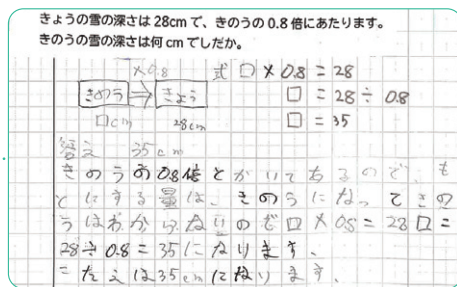 きょうの雪の深さは 28cm で、きのうの 0.8 倍にあたります。
きのうの雪の深さは何 cm でしたか。
×0.8 式 □ × 0.8 = 28
きのう ⇒ きょう □ = 28 ÷ 0.8
□cm 28cm □ = 35
答え 35cm
きのうの0.8倍とかいてあるので、も
とにする量は、きのうになってきの
うはわからないので□×0.8=28 □=
28÷0.8=35になります。
こたえは35cmになります。